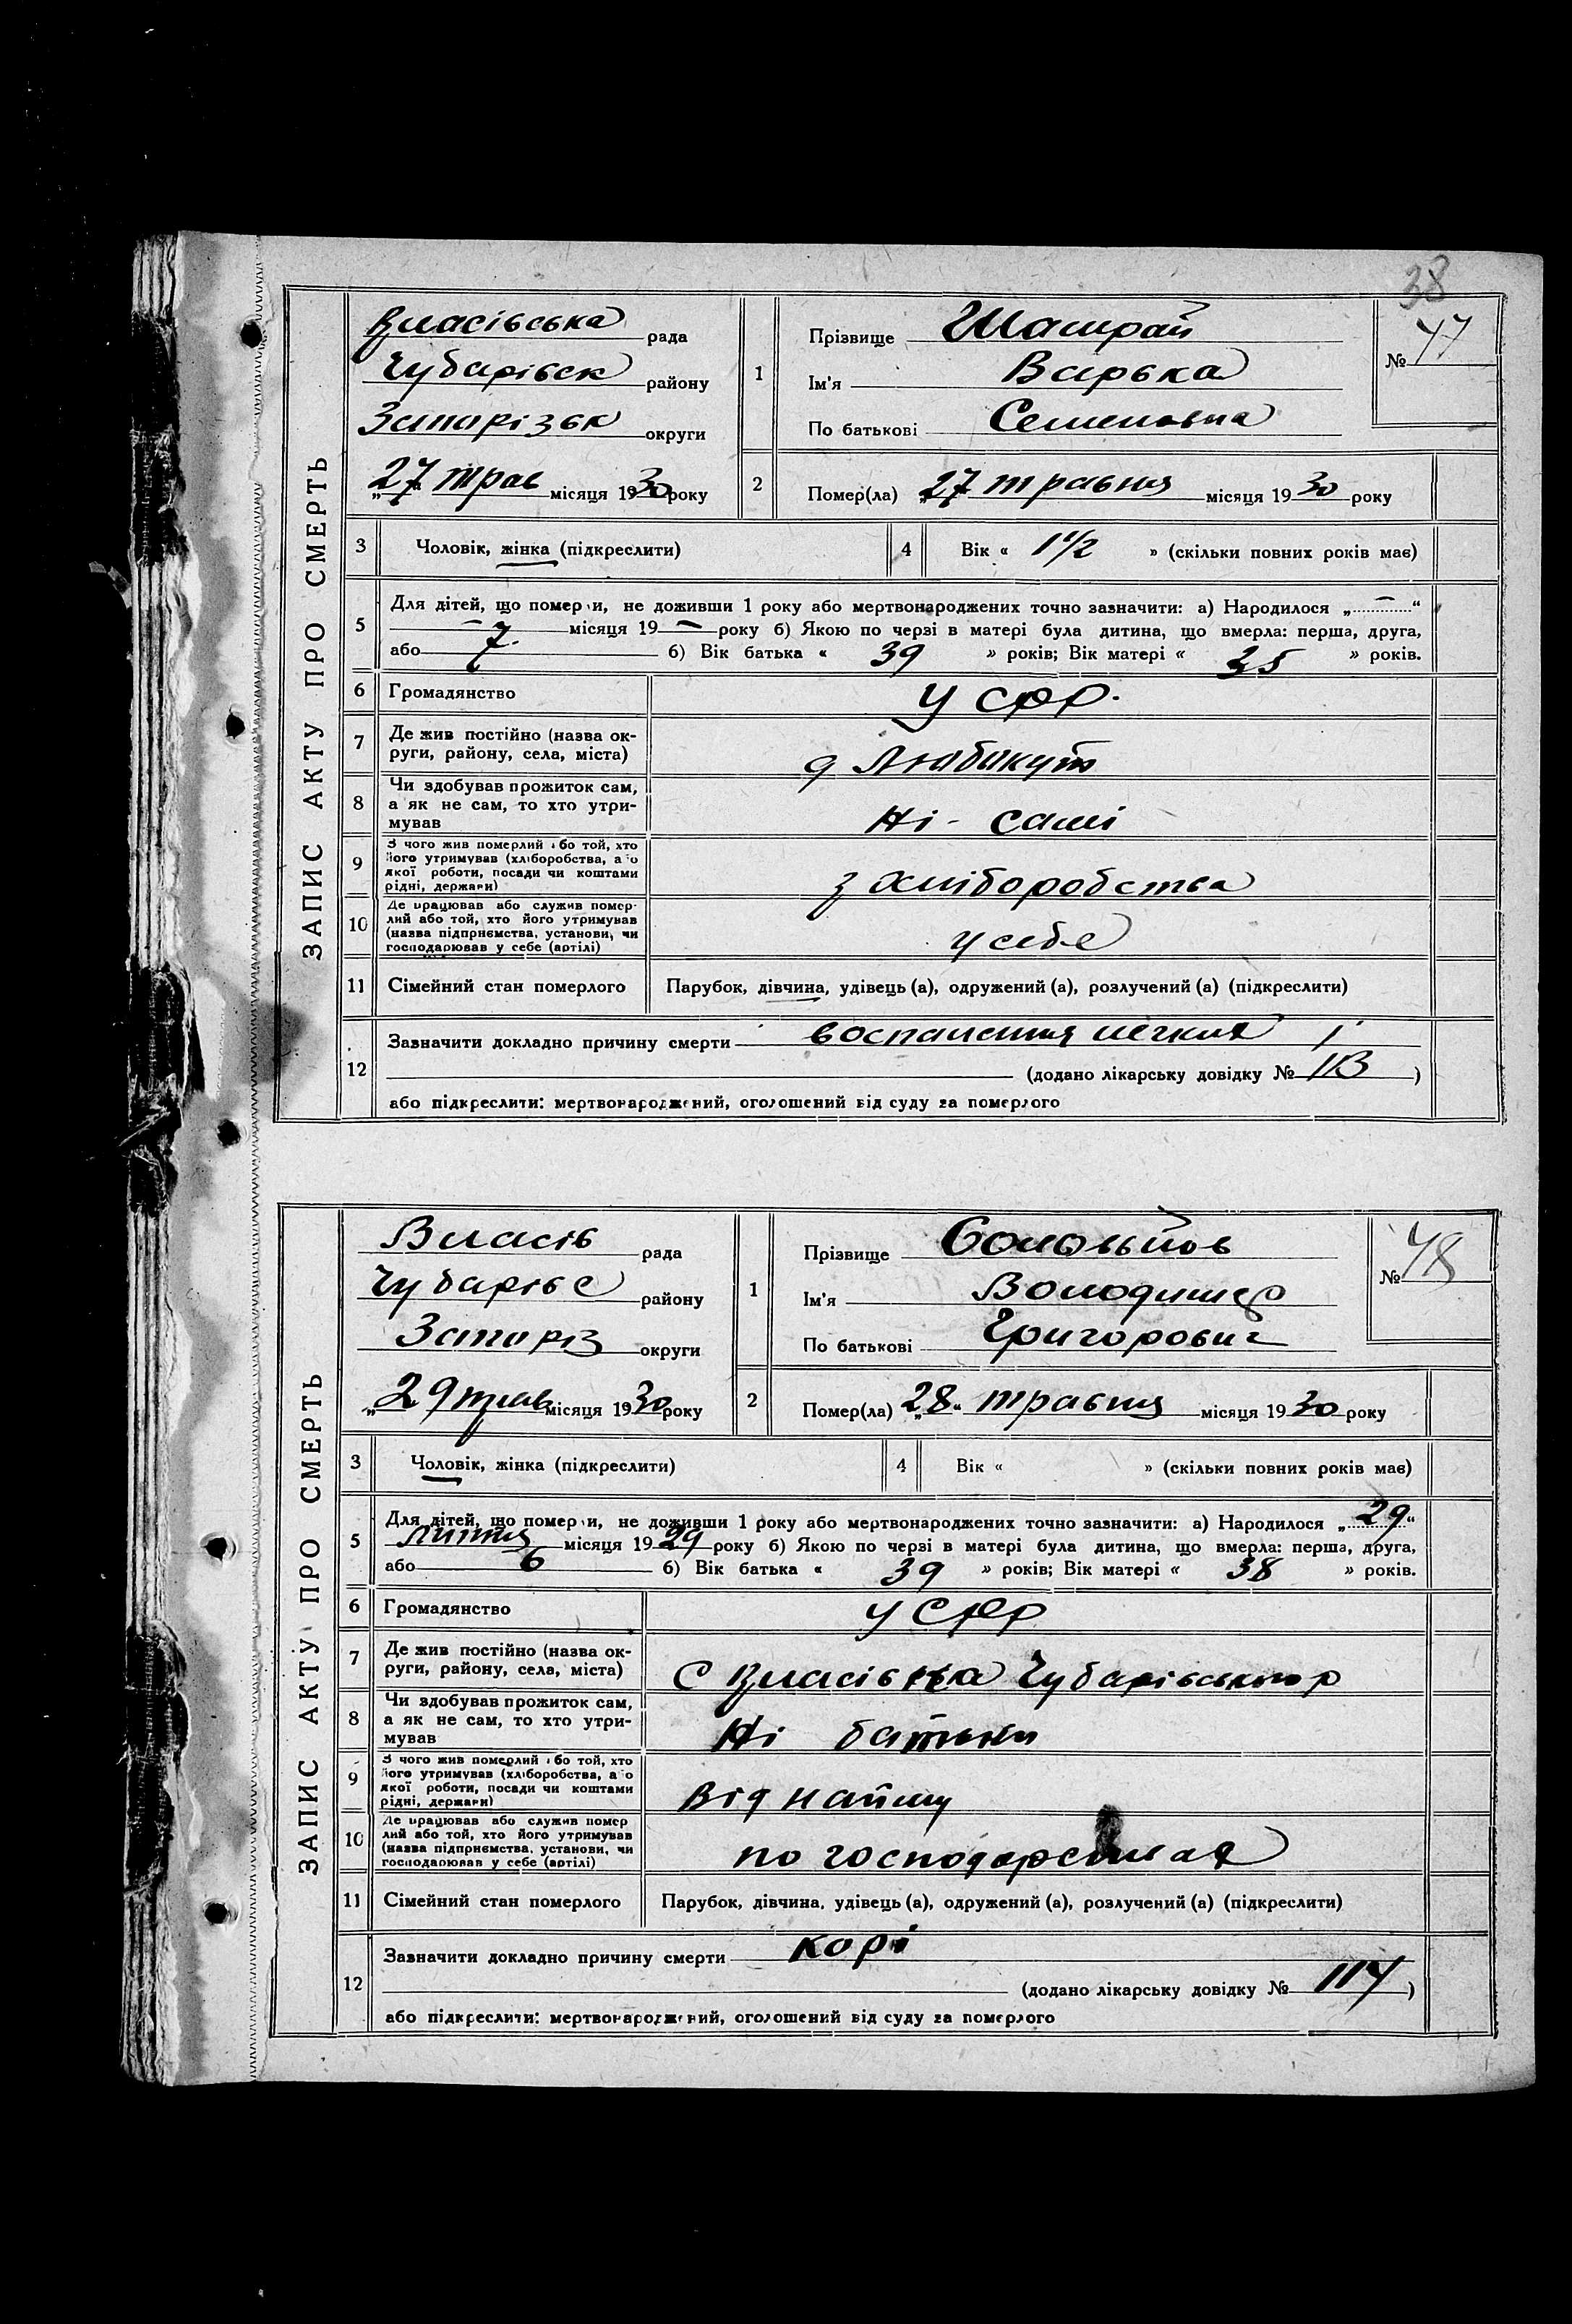 38
ЗАПИС АКТУ ПРО СМЕРТЬ
Власівська рада
Чубарівськ району
Запорізьк округи
„27“ трав місяця 1930 року
1
Прізвище Шамрай
Ім'я Варька
По батькові Семеновна
№ 47
2
Помер(ла) „27“ травня місяця 1930 року
3 Чоловік, жінка (підкреслити)
4 Вік « 1 1/2 » (скільки повних років має)
5 Для дітей, що померли, не доживши 1 року або мертвонароджених точно зазначити: а) Народилося „ — “
— місяця 19 — року б) Якою по черзі в матері була дитина, що вмерла: перша, друга,
або 7. б) Вік батька « 39 » років; Вік матері « 35 » років.
6 Громадянство УСРР.
7 Де жив постійно (назва округи, району, села, міста)
8 Чи здобував прожиток сам, а як не сам, то хто утримував Ні - самі
9 З чого жив померлий або той, хто його утримував (хліборобства, або якої роботи, посади чи коштами рідні, держави) з хліборобства
10 Де працював або служив померлий або той, хто його утримував (назва підприємства, установи, чи господарював у себе (артілі) у себе
11 Сімейний стан померлого Парубок, дівчина, удівець (а), одружений (а), розлучений (а) (підкреслити)
12 Зазначити докладно причину смерти воспаления легких
(додано лікарську довідку № 113)
або підкреслити: мертвонароджений, оголошений від суду за померлого
ЗАПИС АКТУ ПРО СМЕРТЬ
Власів рада
Чубарівс району
Запоріз округи
„29 трав місяця 1930 року
1
Прізвище Соловьйов
Ім'я Володимер
По батькові Григорович
№ 48
2
Помер(ла) „28“ травня місяця 1930 року
3 Чоловік, жінка (підкреслити)
4 Вік « » (скільки повних років має)
5 Для дітей, що померли, не доживши 1 року або мертвонароджених точно зазначити: а) Народилося „29“
липня місяця 1929 року б) Якою по черзі в матері була дитина, що вмерла: перша, друга,
або 6 б) Вік батька « 39 » років; Вік матері « 38 » років.
6 Громадянство УСРР
7 Де жив постійно (назва округи, району, села, міста) с Власівка Чубарівського р
8 Чи здобував прожиток сам, а як не сам, то хто утримував Ні батьки
9 З чого жив померлий або той, хто його утримував (хліборобства, або якої роботи, посади чи коштами рідні, держави) Від найму
10 Де працював або служив померлий або той, хто його утримував (назва підприємства, установи, чи господарював у себе (артілі) по господарствах
11 Сімейний стан померлого Парубок, дівчина, удівець (а), одружений (а), розлучений (а) (підкреслити)
12 Зазначити докладно причину смерти корі
(додано лікарську довідку № 114)
або підкреслити: мертвонароджений, оголошений від суду за померлого